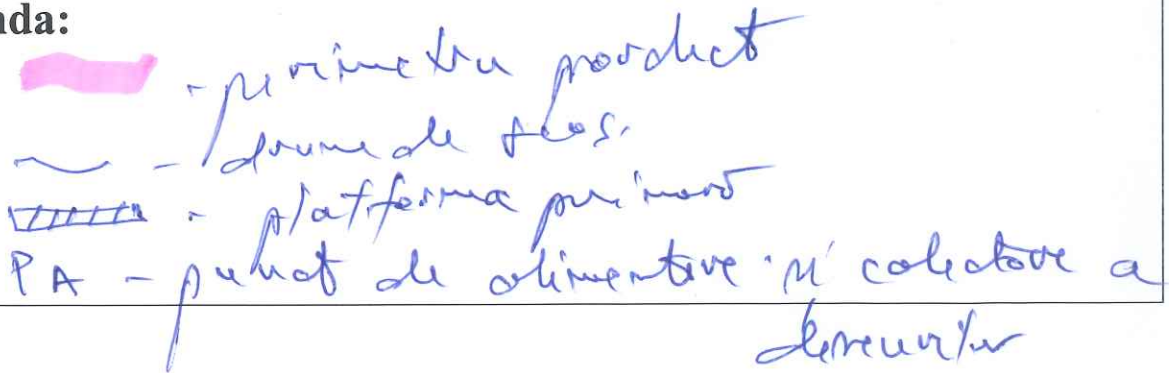 nda:
- perimetru parchet
- drum de scos.
- platforma primară
PA - punct de alimentare și colectare a
deșeurilor